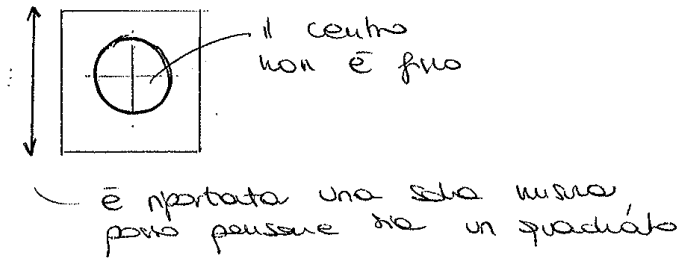 il centro
non è fisso
è riportata una sola misura,
posso pensare sia un quadrato